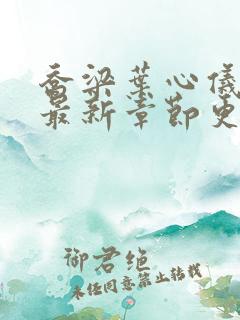 乔梁叶心仪
最新章节更
御君绝
未经同意禁止转载